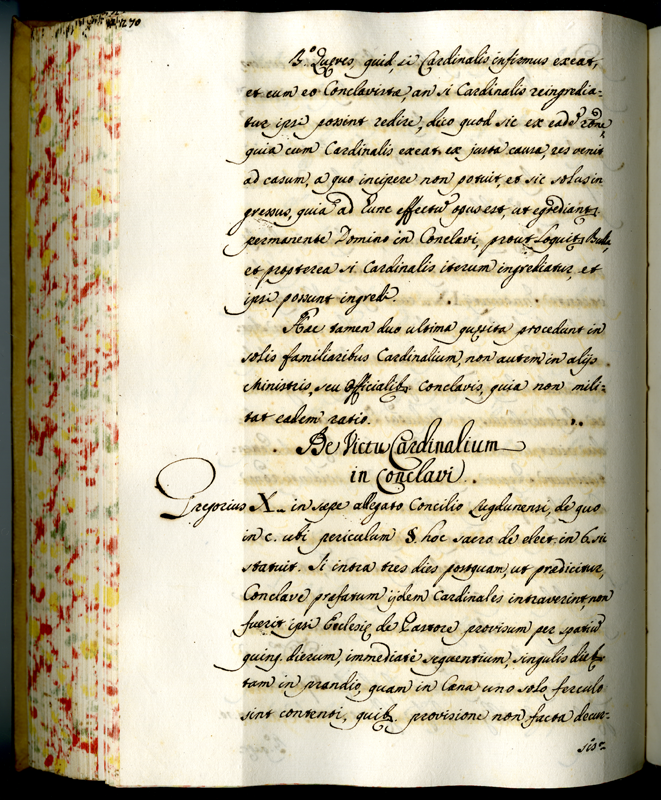 3.º Quæres, quid, si Cardinalis infirmus exeat,
et cum eo Conclavista, an si Cardinalis reingredia-
tur ipsi possint redire, dico quod sic ex eadē rōne,
quia cum Cardinalis exeat ex justa causa, res venit
ad casum, a quo incipere non potuit, et sic solus in
gressus, quia ad hunc effectū opus est, ut egrediantr
permanente Domino in Conclavi, prout loquitr Bulla,
et propterea si Cardinalis iterum ingrediatur, et
ipsi possunt ingredi.
Hæc tamen duo ultima quæsita procedunt in
solis familiaribus Cardinalium, non autem in alijs
Ministris, seu Officialibz Conclavis, quia non mili-
tat eadem ratio.
De Victu Cardinalium
in Conclavi
Gregorius X. in sæpe allegato Concilio Lugdunensi, de quo
in c. ubi periculum §. hoc sacro de elect. in 6. sic
statuit. Si intra tres dies postquam, ut prædicitur,
Conclave præfatum ijdem Cardinales intraverint, non
fuerit ipsi Ecclesiæ de Pastore provisum per spatiū
quinq. dierum, immediatè sequentium, singulis diebz
tam in prandio, quam in Cæna uno solo ferculo
sint contenti, quibz. provisione non facta decur-
sis